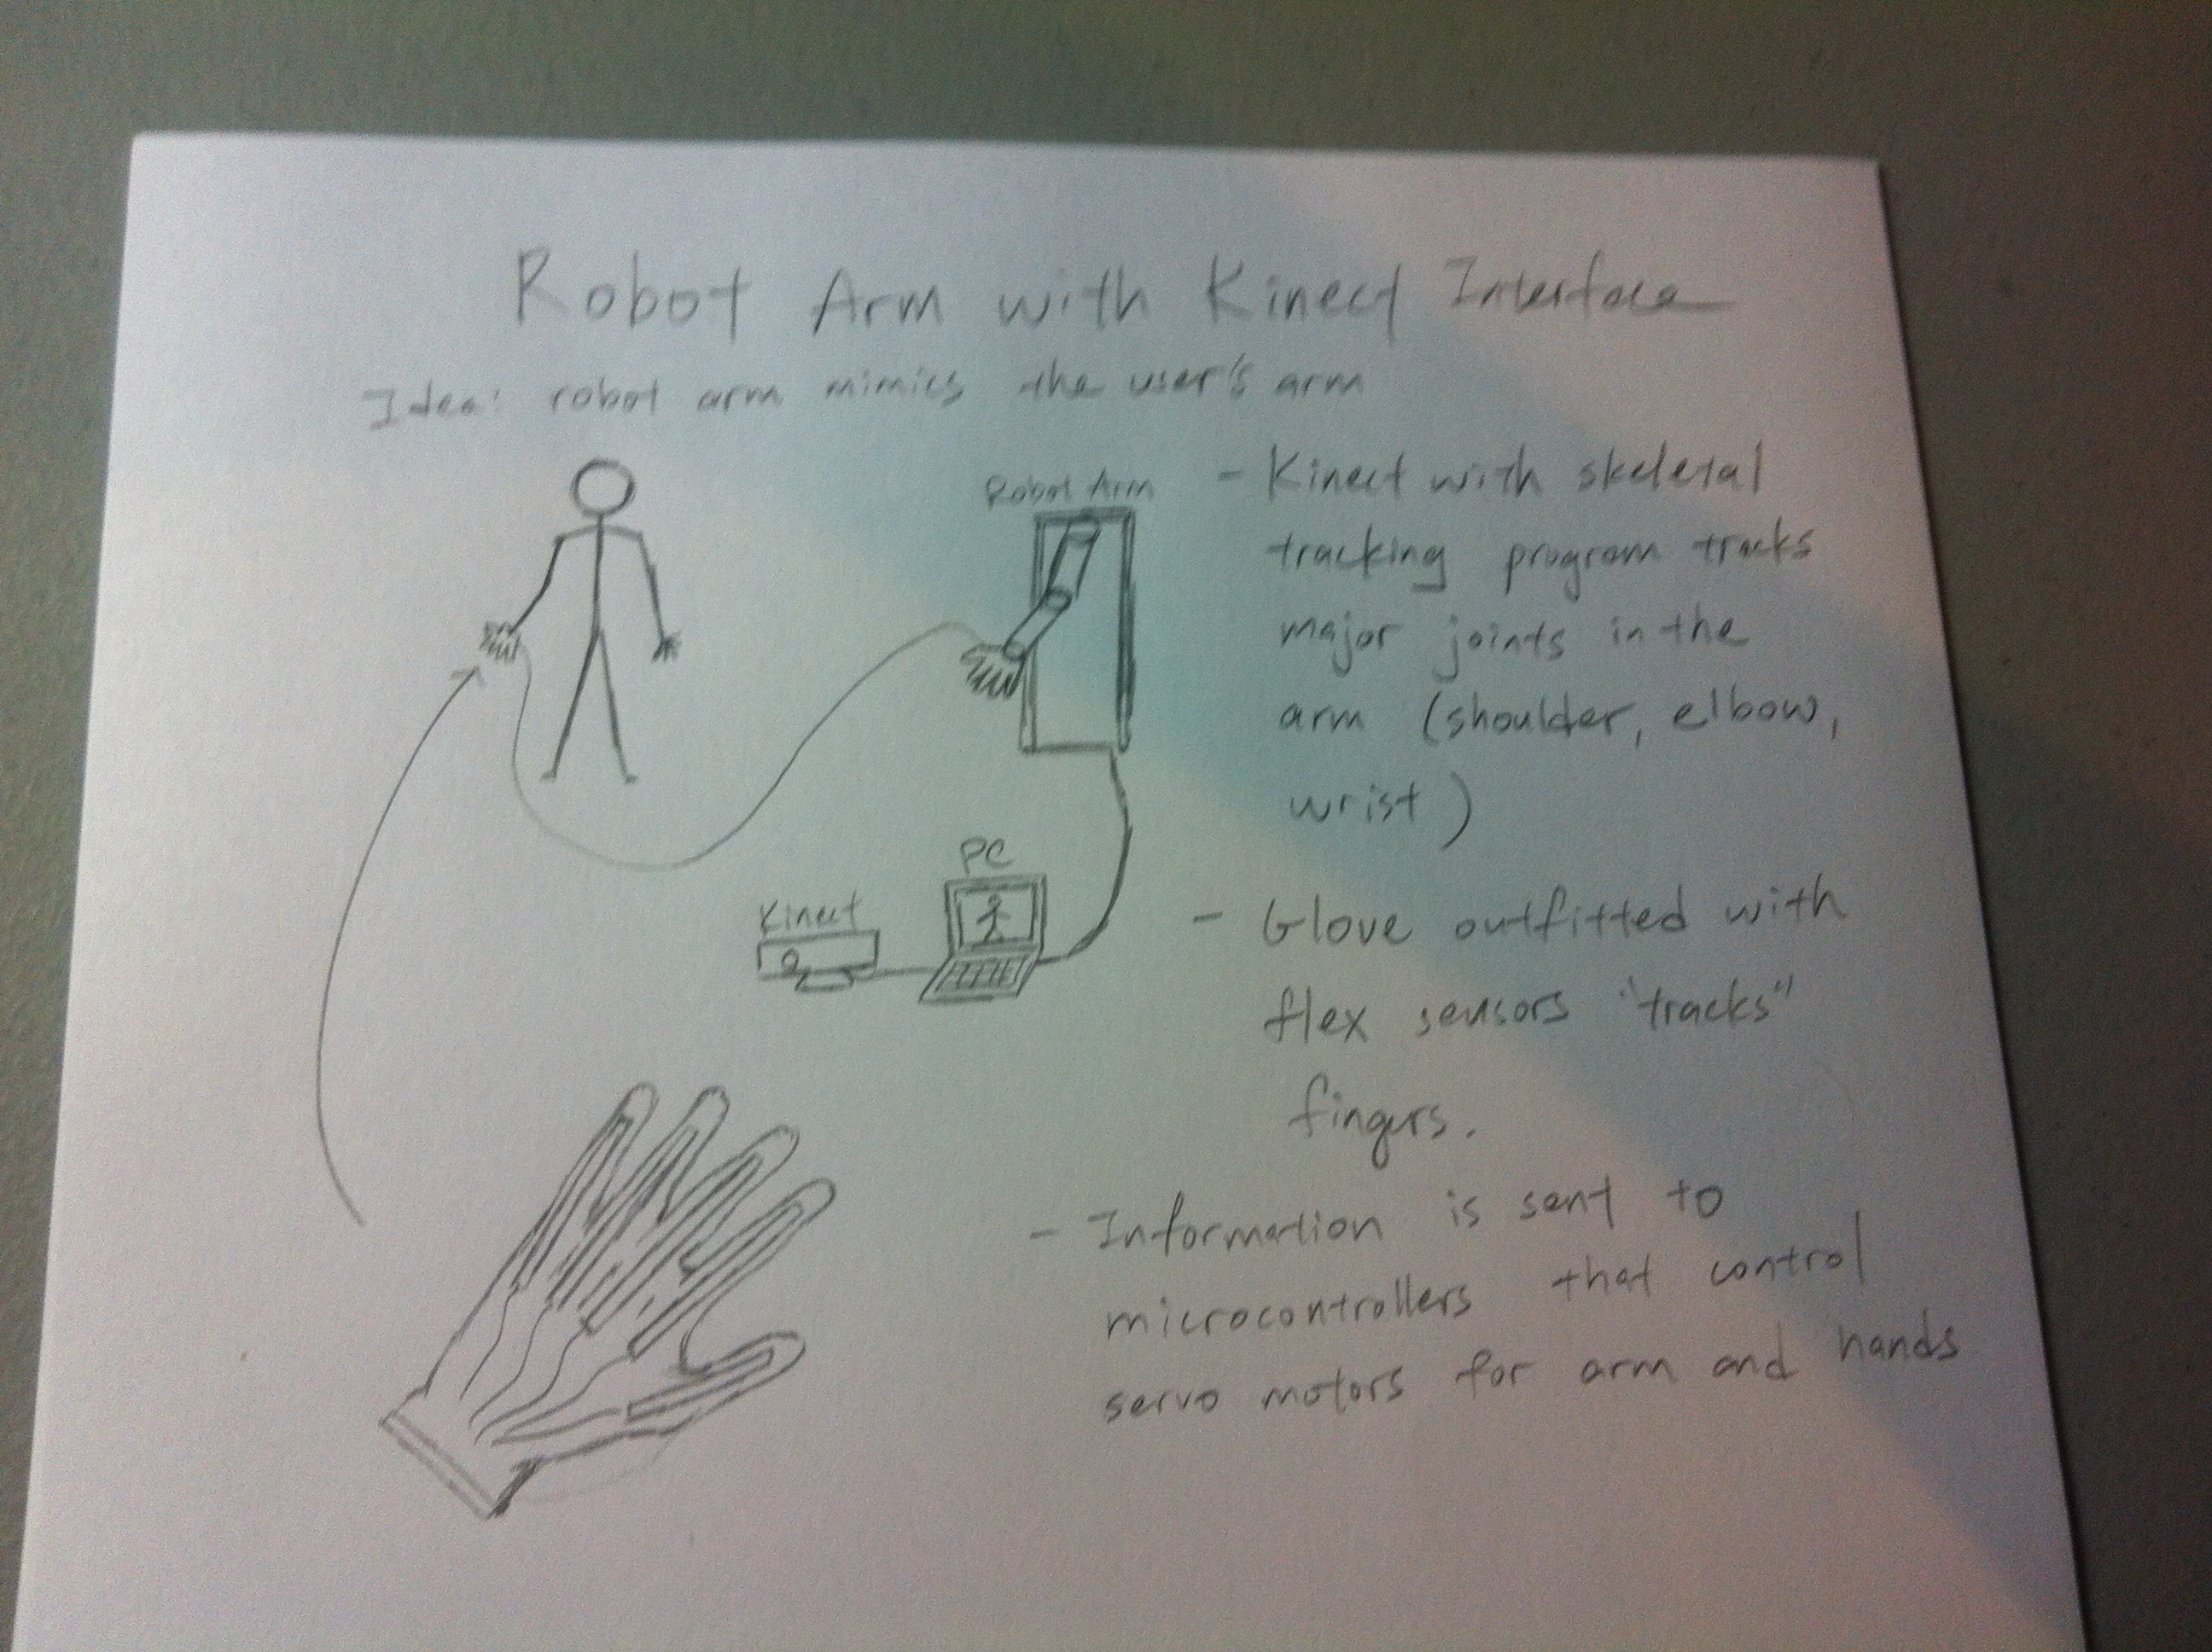 Robot Arm with Kinect Interface
Idea: robot arm mimics the user's arm
Robot Arm
PC
Kinect
- Kinect with skeletal
tracking program tracks
major joints in the
arm (shoulder, elbow,
wrist)
- Glove outfitted with
flex sensors "tracks"
fingers.
- Information is sent to
microcontrollers that control
servo motors for arm and hands